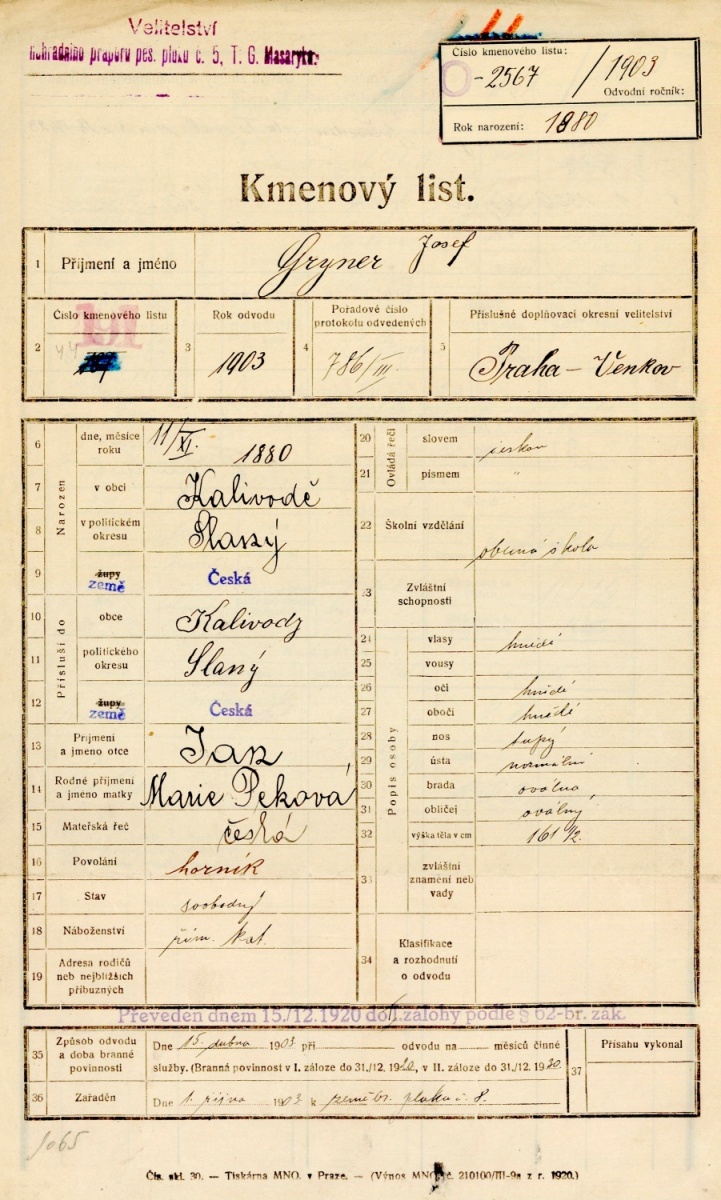 Velitelství
náhradního praporu pěš. pluku č. 5, T. G. Masaryka.
Číslo kmenového listu:
-2567 / 1903
Odvodní ročník:
Rok narození: 1880
Kmenový list.
1 Příjmení a jméno Gryner Josef
Číslo kmenového listu 191 Rok odvodu Pořadové číslo protokolu odvedených Příslušné doplňovací okresní velitelství
2 44 3 1903 4 786/III 5 Praha - Venkov
Narozen
6 dne, měsíce roku 11/XI. 1880
7 v obci Kalivodě
8 v politickém okresu Slaný
9 župy země Česká
Přísluší do
10 obce Kalivody
11 politického okresu Slaný
12 župy země Česká
13 Příjmení a jméno otce Jan
14 Rodné příjmení a jméno matky Marie Peková
15 Mateřská řeč česká
16 Povolání horník
17 Stav svobodný
18 Náboženství řím. kat.
19 Adresa rodičů neb nejbližších příbuzných
Ovládá řeči
20 slovem českou
21 písmem "
22 Školní vzdělání obecná škola
23 Zvláštní schopnosti
Popis osoby
24 vlasy hnědé
25 vousy
26 oči hnědé
27 obočí hnědé
28 nos tupý
29 ústa normální
30 brada oválná
31 obličej oválný
32 výška těla v cm 161 1/2.
33 zvláštní znamení neb vady
34 Klasifikace a rozhodnutí o odvodu
Převeden dnem 15./12. 1920 do I. zálohy podle § 62-br. zák.
35 Způsob odvodu a doba branné povinnosti Dne 15. dubna 1903 při odvodu na měsíců činné
služby. (Branná povinnost v I. záloze do 31./12. 1920, v II. záloze do 31./12. 1930.
37 Přísahu vykonal
36 Zařaděn Dne 1. října 1903 k zeměbr. pluku č. 8.
1065
Čís. skl. 30. — Tiskárna MNO. v Praze. — (Výnos MNO. č. 210100/III-9a z r. 1920.)